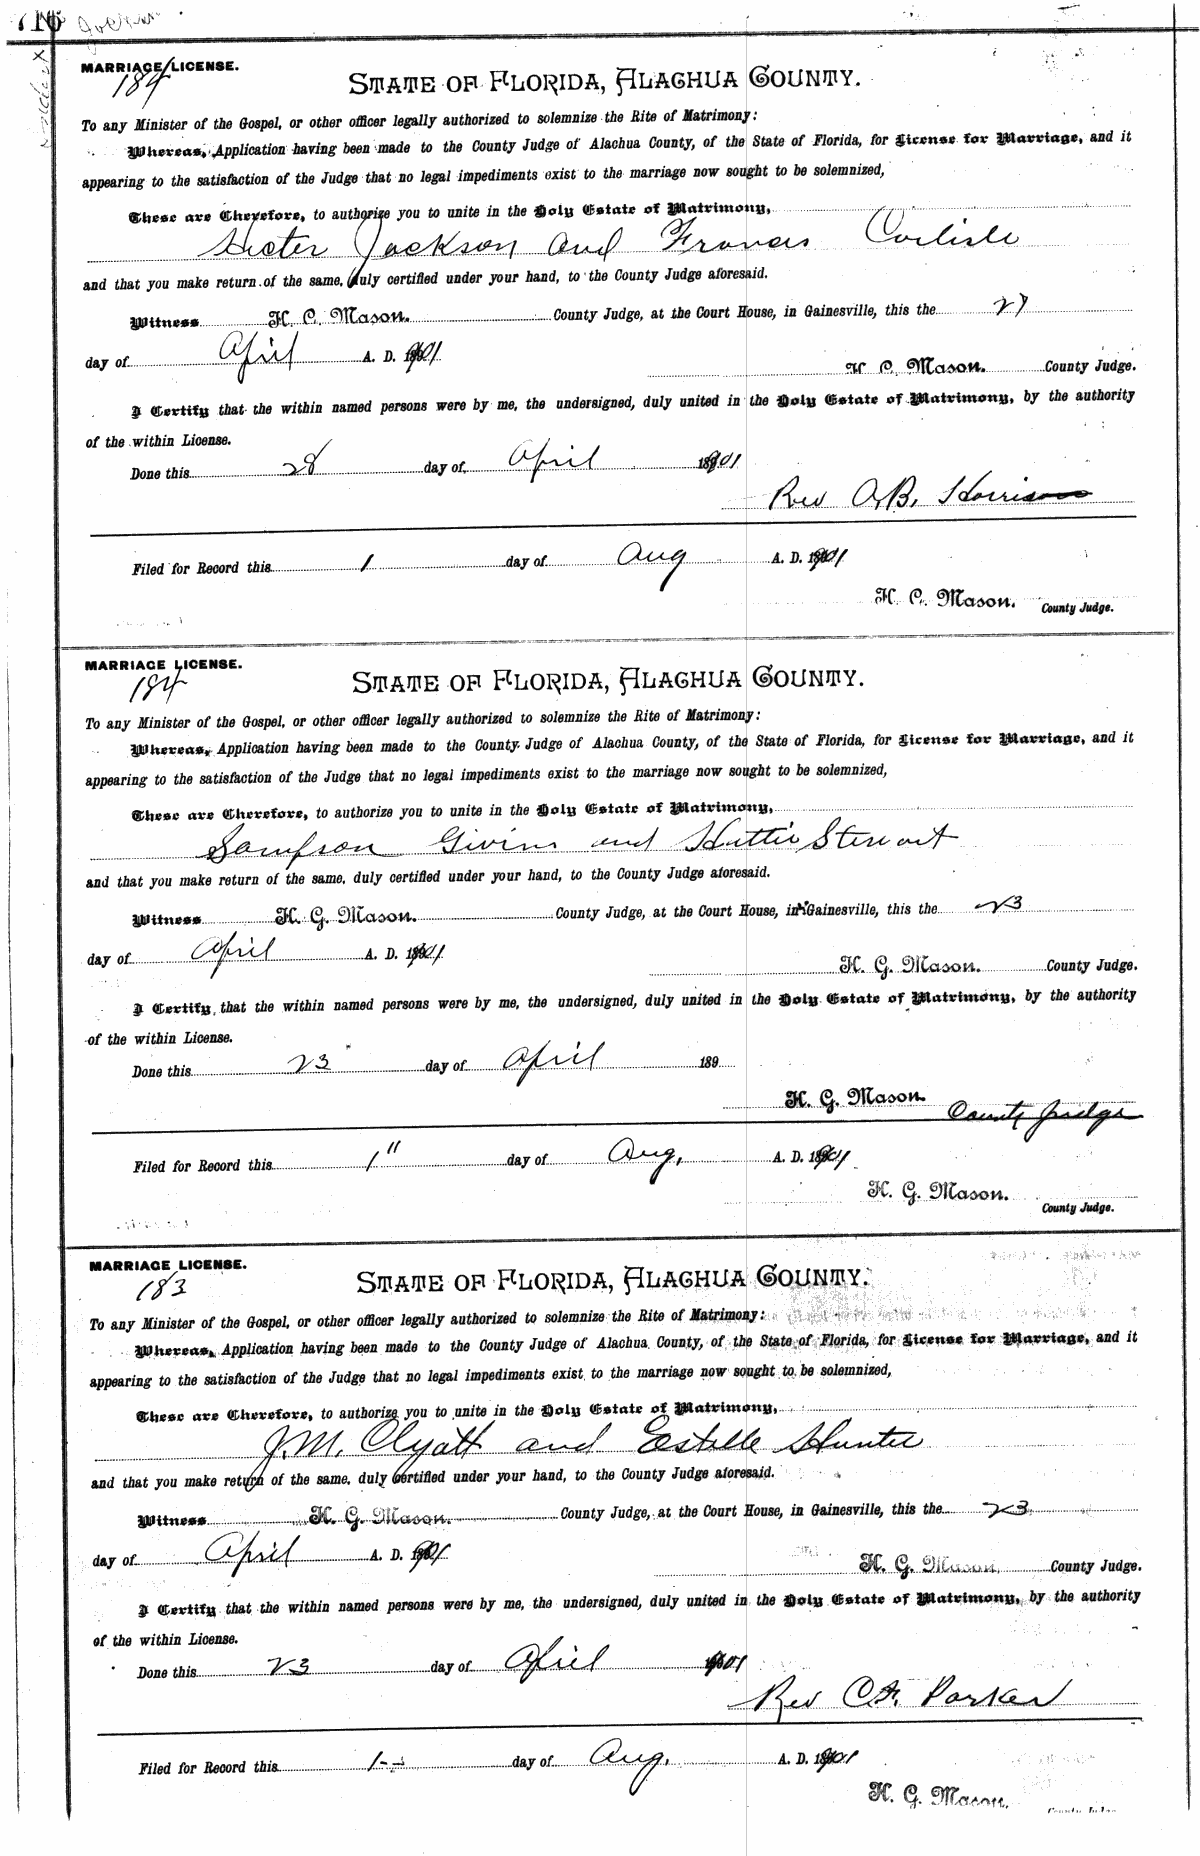 716
MARRIAGE LICENSE.
184
STATE OF FLORIDA, ALACHUA COUNTY.
To any Minister of the Gospel, or other officer legally authorized to solemnize the Rite of Matrimony:
Whereas, Application having been made to the County Judge of Alachua County, of the State of Florida, for License for Marriage, and it
appearing to the satisfaction of the Judge that no legal impediments exist to the marriage now sought to be solemnized,
These are Therefore, to authorize you to unite in the Holy Estate of Matrimony,
Jackson and Francis Carlisle
and that you make return of the same, duly certified under your hand, to the County Judge aforesaid.
Witness H. C. Mason. County Judge, at the Court House, in Gainesville, this the 27
day of April A. D. 1901
H. C. Mason. County Judge.
I Certify that the within named persons were by me, the undersigned, duly united in the Holy Estate of Matrimony, by the authority
of the within License.
Done this 28 day of April 1901
Rev A, B, Harrison
Filed for Record this 1 day of Aug A. D. 1901
H. C. Mason. County Judge.
MARRIAGE LICENSE.
184
STATE OF FLORIDA, ALACHUA COUNTY.
To any Minister of the Gospel, or other officer legally authorized to solemnize the Rite of Matrimony:
Whereas, Application having been made to the County Judge of Alachua County, of the State of Florida, for License for Marriage, and it
appearing to the satisfaction of the Judge that no legal impediments exist to the marriage now sought to be solemnized,
These are Therefore, to authorize you to unite in the Holy Estate of Matrimony,
Sampson Givins and Hattie Stewart
and that you make return of the same, duly certified under your hand, to the County Judge aforesaid.
Witness H. G. Mason. County Judge, at the Court House, in Gainesville, this the 23
day of April A. D. 1901
H. G. Mason. County Judge.
I Certify that the within named persons were by me, the undersigned, duly united in the Holy Estate of Matrimony, by the authority
of the within License.
Done this 23 day of April 189
H. G. Mason. County Judge
Filed for Record this 1" day of Aug, A. D. 1901
H. G. Mason.
County Judge.
MARRIAGE LICENSE.
183
STATE OF FLORIDA, ALACHUA COUNTY.
To any Minister of the Gospel, or other officer legally authorized to solemnize the Rite of Matrimony:
Whereas, Application having been made to the County Judge of Alachua County, of the State of Florida, for License for Marriage, and it
appearing to the satisfaction of the Judge that no legal impediments exist to the marriage now sought to be solemnized,
These are Therefore, to authorize you to unite in the Holy Estate of Matrimony,
J. M. Clyatt and Estelle Hunter
and that you make return of the same, duly certified under your hand, to the County Judge aforesaid.
Witness H. G. Mason. County Judge, at the Court House, in Gainesville, this the 23
day of April A. D. 1901
H. G. Mason. County Judge.
I Certify that the within named persons were by me, the undersigned, duly united in the Holy Estate of Matrimony, by the authority
of the within License.
Done this 23 day of April 1901
Rev C. F. Parker
Filed for Record this 1 day of Aug. A. D. 1901
H. G. Mason.
County Judge